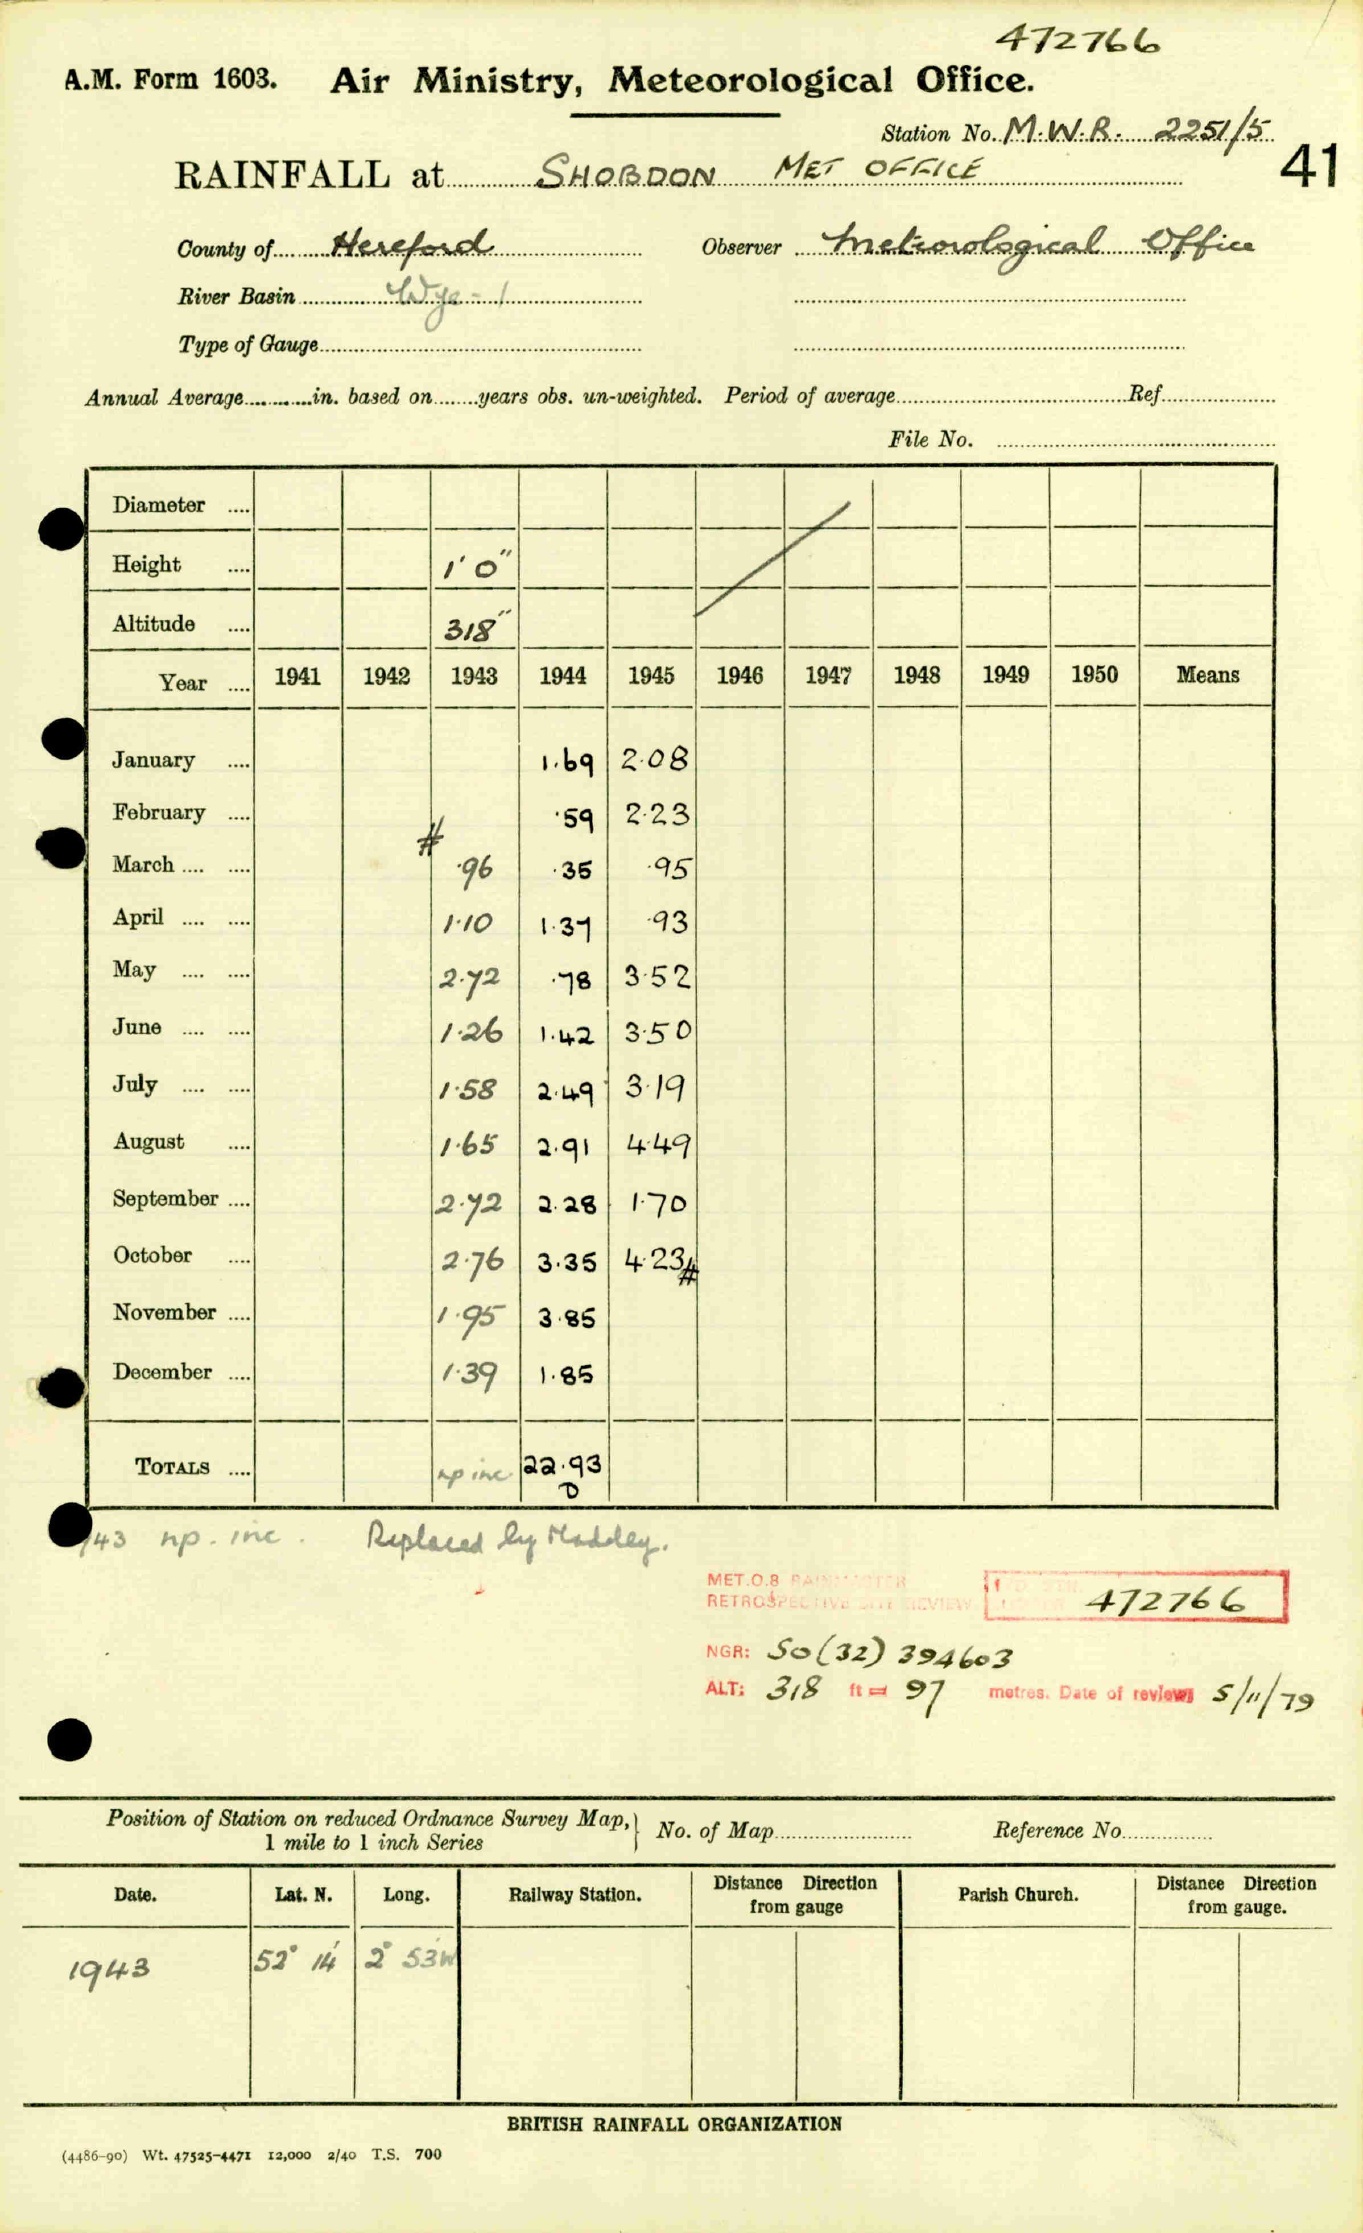 472766
A.M. Form 1603. Air Ministry, Meteorological Office.
Station No. M.W.R. 2251/5
41
RAINFALL at SHOBDON MET OFFICE
County of Hereford Observer Meteorological Office
River Basin Wye - 1
Type of Gauge
Annual Average in. based on years obs. un-weighted. Period of average Ref.
File No.
Diameter
Height 1' 0"
Altitude 318"
Year 1941 1942 1943 1944 1945 1946 1947 1948 1949 1950 Means
January 1.69 2.08
February .59 2.23
#
March .96 .35 .95
April 1.10 1.37 .93
May 2.72 .78 3.52
June 1.26 1.42 3.50
July 1.58 2.49 3.19
August 1.65 2.91 4.49
September 2.72 2.28 1.70
October 2.76 3.35 4.23#
November 1.95 3.85
December 1.39 1.85
TOTALS np inc 22.93
D
/43 np. inc. Replaced by Maddley.
MET.O.8 RAINMASTER
RETROSPECTIVE SITE REVIEW 472766
NGR: SO (32) 394603
ALT: 318 ft = 97 metres. Date of review: 5/11/79
Position of Station on reduced Ordnance Survey Map, 1 mile to 1 inch Series No. of Map Reference No.
Date. Lat. N. Long. Railway Station. Distance Direction from gauge Parish Church. Distance Direction from gauge.
1943 52° 14' 2° 53'W
BRITISH RAINFALL ORGANIZATION
(4486-90) Wt. 47525-4471 12,000 2/40 T.S. 700